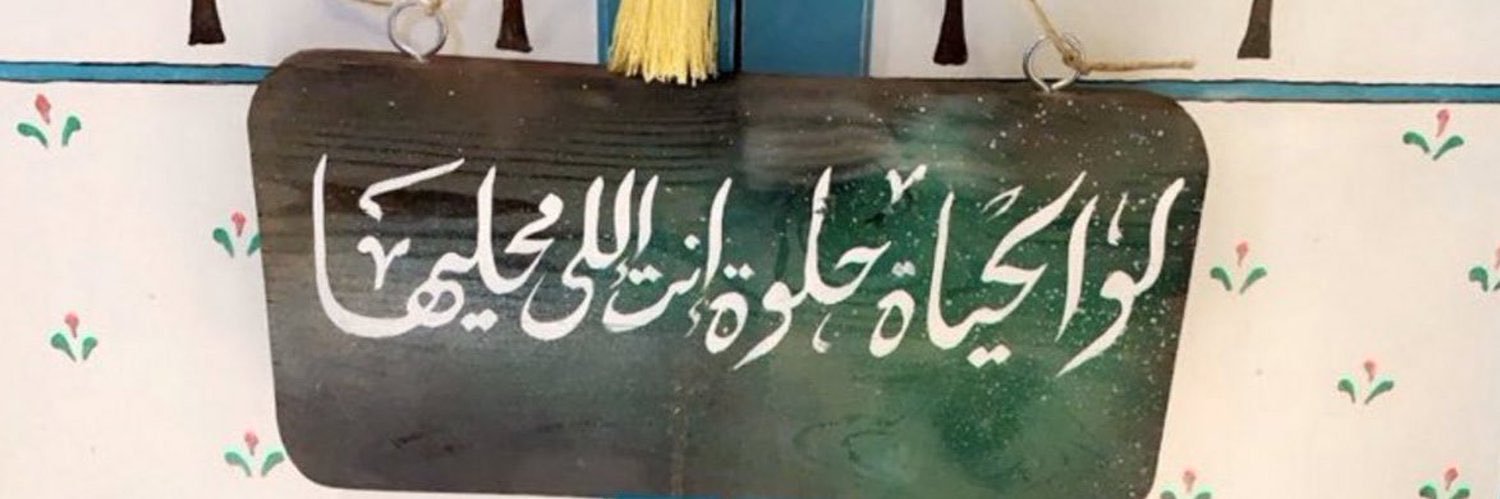 لو الحياة حلوة إنت إللى محليها